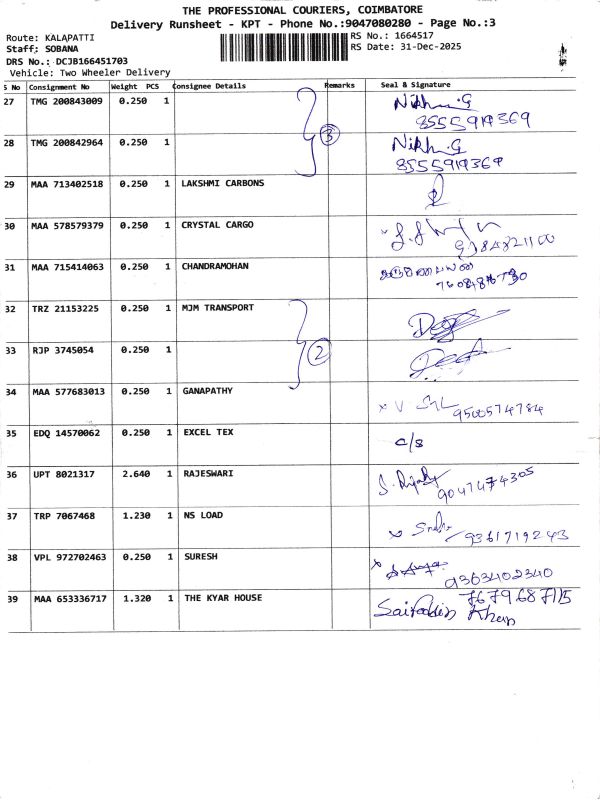 THE PROFESSIONAL COURIERS, COIMBATORE
Delivery Runsheet - KPT - Phone No.:9047080280 - Page No.:3
Route: KALAPATTI
RS No.: 1664517
Staff: SOBANA
RS Date: 31-Dec-2025
DRS No.: DCJB166451703
Vehicle: Two Wheeler Delivery
S No Consignment No Weight PCS Consignee Details Remarks Seal & Signature
27 TMG 200843009 0.250 1
8555919369
28 TMG 200842964 0.250 1 3 Nikh.G
8555919369
29 MAA 713402518 0.250 1 LAKSHMI CARBONS
30 MAA 578579379 0.250 1 CRYSTAL CARGO
31 MAA 715414063 0.250 1 CHANDRAMOHAN
32 TRZ 21153225 0.250 1 MJM TRANSPORT
33 RJP 3745054 0.250 1 2
34 MAA 577683013 0.250 1 GANAPATHY
9500574784
35 EDQ 14570062 0.250 1 EXCEL TEX c/s
36 UPT 8021317 2.640 1 RAJESWARI
9047474305
37 TRP 7067468 1.230 1 NS LOAD
9361719243
38 VPL 972702463 0.250 1 SURESH
9363402340
39 MAA 653336717 1.320 1 THE KYAR HOUSE 7679687115
Khan